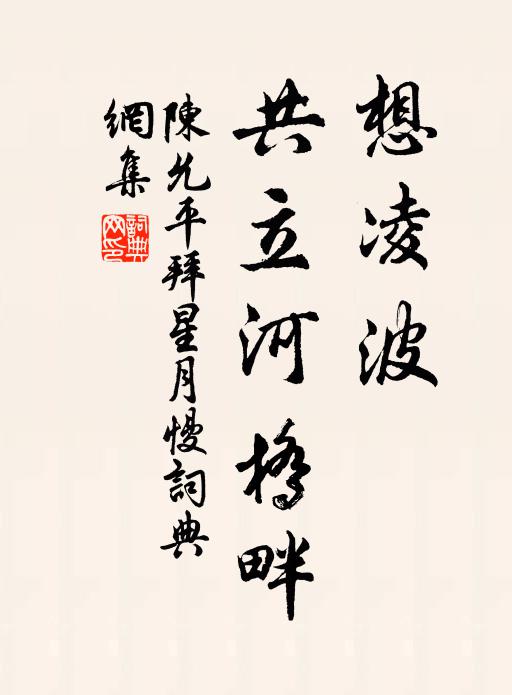 想凌波
共立河橋畔
陳允平拜星月慢詞典
網集
詞典
网印